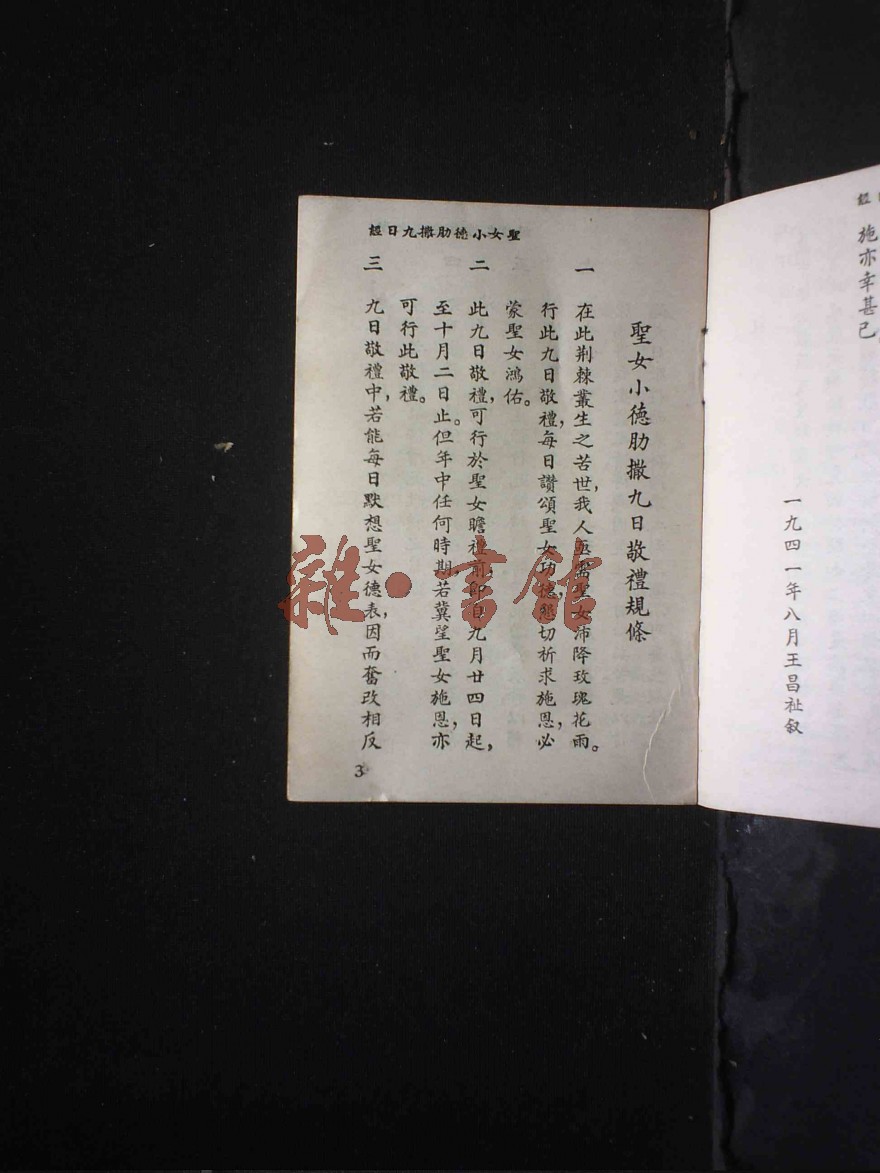 經日
施亦幸甚已
一九四一年八月王昌祉叙
聖女小德肋撒九日經
聖女小德肋撒九日敬禮規條
一 在此荆棘叢生之苦世，我人亟需聖女沛降玫瑰花雨。
行此九日敬禮，每日讚頌聖女功德，懇切祈求施恩，必
蒙聖女鴻佑。
二 此九日敬禮，可行於聖女瞻禮前，即自九月廿四日起，
至十月二日止。但年中任何時期，若冀望聖女施恩，亦
可行此敬禮。
三 九日敬禮中，若能每日默想聖女德表，因而奮改相反
3
雜·書館